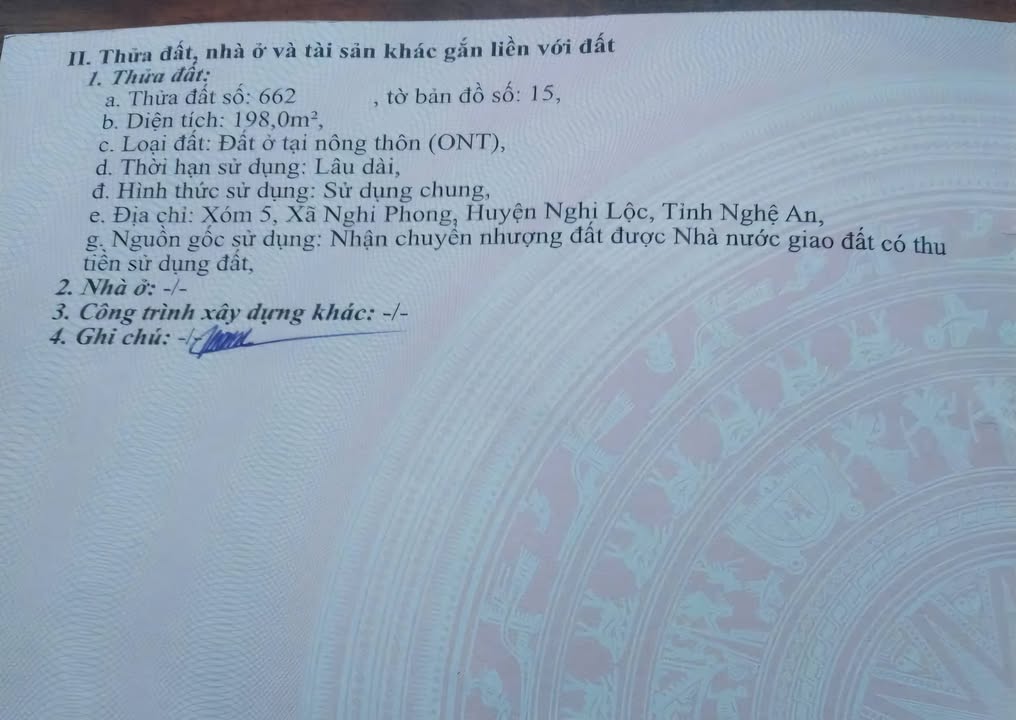 II. Thửa đất, nhà ở và tài sản khác gắn liền với đất
1. Thửa đất:
a. Thửa đất số: 662 , tờ bản đồ số: 15,
b. Diện tích: 198,0m²,
c. Loại đất: Đất ở tại nông thôn (ONT),
d. Thời hạn sử dụng: Lâu dài,
đ. Hình thức sử dụng: Sử dụng chung,
e. Địa chỉ: Xóm 5, Xã Nghi Phong, Huyện Nghi Lộc, Tỉnh Nghệ An,
g. Nguồn gốc sử dụng: Nhận chuyển nhượng đất được Nhà nước giao đất có thu
tiền sử dụng đất,
2. Nhà ở: -/-
3. Công trình xây dựng khác: -/-
4. Ghi chú: -/-